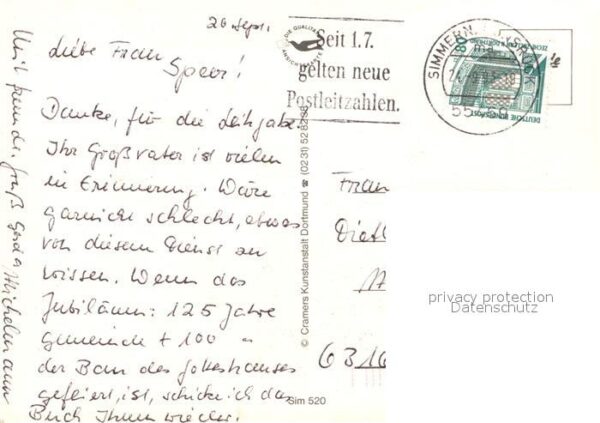 26. Sept.
Liebe Frau
Speer!
Danke, für die Leihgabe.
Ihr Großvater ist vielen
in Erinnerung. Wäre
garnicht schlecht, etwas
von diesem Dienst zu
wissen. Wenn das
Jubiläum: 125 Jahre
Gemeinde + 100 "
der Bau des Gotteshauses
gefeiert, ist, schicke ich das
Buch Ihnen wieder.
Mit freundl. Gruß Gerda Michelmann
DIE QUALITÄTS
ANSICHTSKARTE
Seit 1.7.
gelten neue
Postleitzahlen.
SIMMERN, HUNSRÜCK
mg
55469
80
DEUTSCHE BUNDESPOST
ZECHE ZOLLERN II DORTMUND
© Cramers Kunstanstalt Dortmund ☎ (0231) 528238
Sim 520
Frau
Diet
6316
privacy protection
Datenschutz